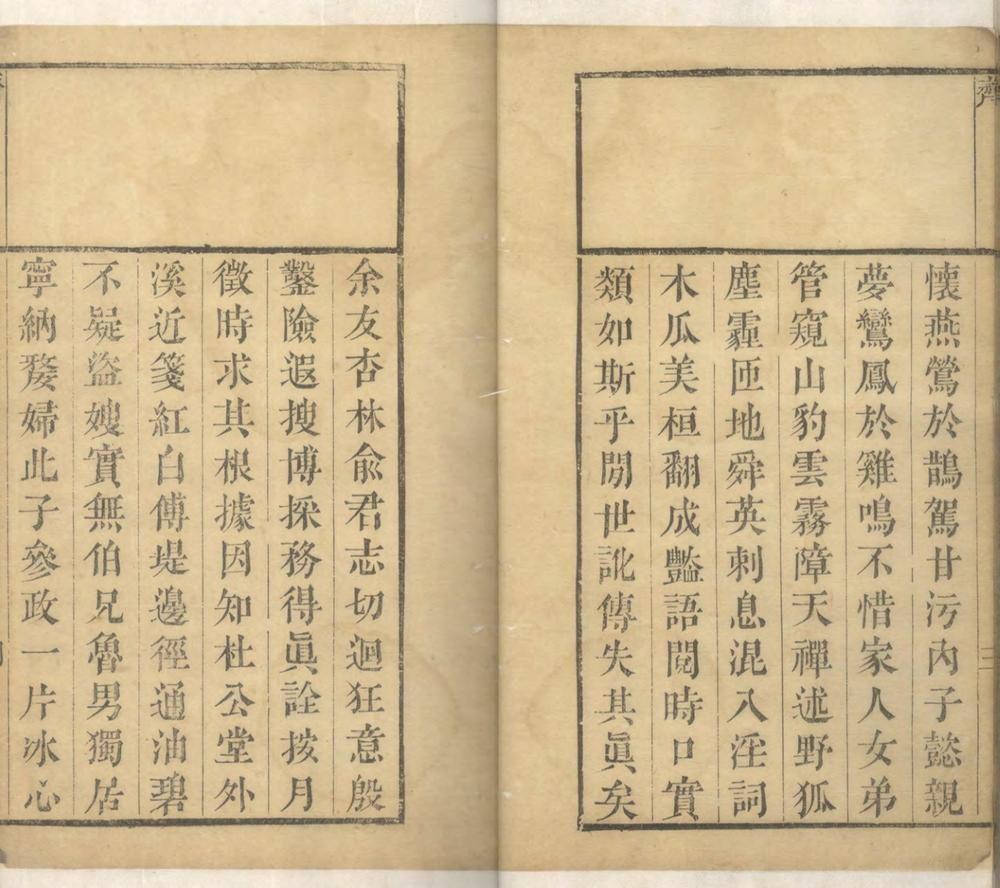 齊
懐燕鶯於鵲駕甘污内子懿親
夢鸞鳳於雞鳴不惜家人女弟
管窺山豹雲霧障天禪述野狐
塵霾匝地舜英刺息混入淫詞
木瓜美桓翻成豔語閱時口實
類如斯乎閒世訛傳失其眞矣
三
余友杏林兪君志切迴狂意殷
鑿險遐搜博採務得眞詮按月
徵時求其根據因知杜公堂外
溪近箋紅白傅堤邊徑通油碧
不疑盜嫂實無伯兄魯男獨居
寧納嫠婦此子參政一片冰心